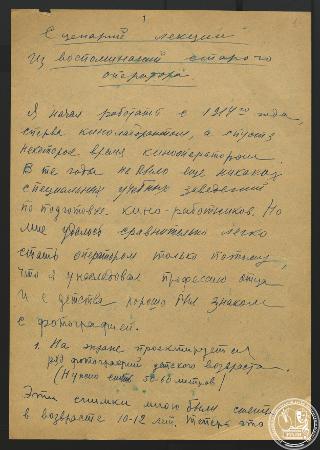 1
Сценарий лекции
Из воспоминаний старого
оператора
Я начал работать с 1914го года,
сперва кинолаборантом, а спустя
некоторое время кинооператором.
В те годы не было еще никаких
специальных учебных заведений
по подготовке кино-работников. Но
мне удалось сравнительно легко
стать оператором только потому,
что я унаследовал профессию отца
и с детства хорошо был знаком
с фотографией.
1. На экране проектируется
ряд фотографий детского возраста.
(Нужно 50-60 метров)
Эти снимки мною были
в возрасте 10-12 лет. Теперь это